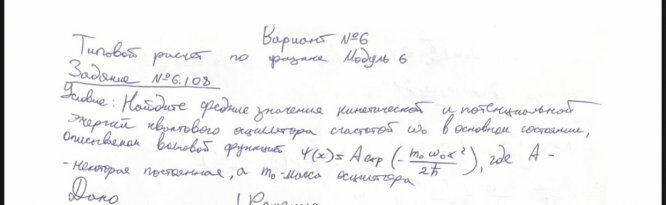 Вариант №6
Типовой расчет по физике Модуль 6
Задание №6.108
Условие: Найдите средние значения кинетической и потенциальной
энергий квантового осциллятора с частотой ω₀ в основном состоянии,
описываемом волновой функцией Ψ(x) = A exp (- m₀ω₀x² / 2ħ), где A -
- некоторая постоянная, а m₀ - масса осциллятора
Дано